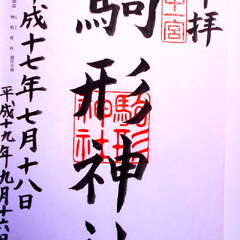 拝
中宮
駒形神社
駒形
神社
平成十七年七月十八日
平成十九年九月十六日